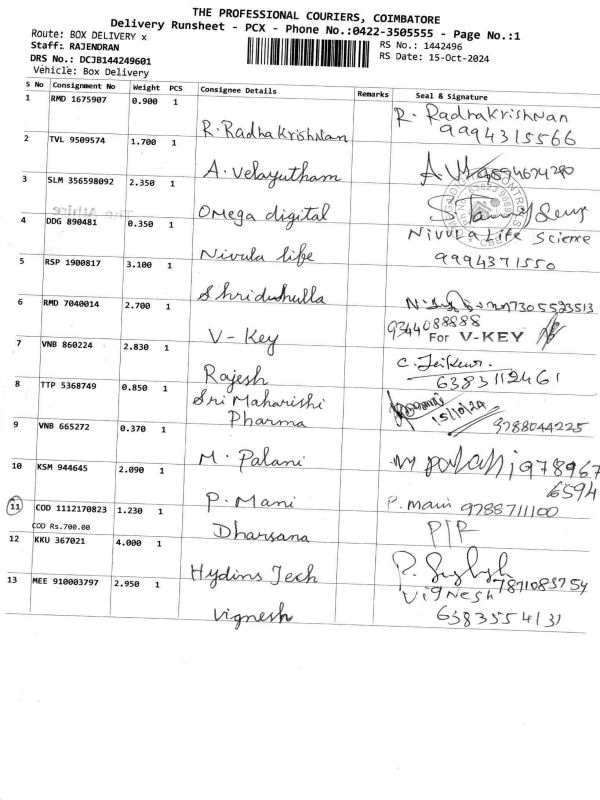 THE PROFESSIONAL COURIERS, COIMBATORE
Delivery Runsheet - PCX - Phone No.:0422-3505555 - Page No.:1
Route: BOX DELIVERY x
RS No.: 1442496
Staff: RAJENDRAN
RS Date: 15-Oct-2024
DRS No.: DCJB144249601
Vehicle: Box Delivery
S No Consignment No Weight PCS Consignee Details Remarks Seal & Signature
1 RMD 1675907 0.900 1 R. Radhakrishnan R. Radhakrishnan
9994315566
2 TVL 9509574 1.700 1 A. Velayutham
3 SLM 356598092 2.350 1 Omega digital
4 DDG 890481 0.350 1 Nivula life Nivula Life Science
9994371550
5 RSP 1900817 3.100 1 Shridushulla 7305523513
6 RMD 7040014 2.700 1 V-Key 9344088888
For V-KEY
7 VNB 860224 2.830 1 Rajesh C. Jeikumr.
6383112461
8 TTP 5368749 0.850 1 Sri Maharishi
Pharma
15/10/24
9788044225
9 VNB 665272 0.370 1 M. Palani m palani 978967
6594
10 KSM 944645 2.090 1 P. Mani P. Mani 9788711100
11 COD 1112170823 1.230 1 Dharsana P/F
COD Rs.700.00
12 KKU 367021 4.000 1 Hydins Tech 7871083754
13 MEE 910003797 2.950 1 Vignesh Vignesh
6383554131